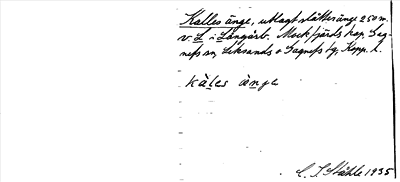 Kalles änge, utlagt slåtteränge 250 m.
v. L i Långärb. Mockfjärds kap. Gag-
nefs sn, Leksands o Gagnefs tg, Kopp. l.
kàles ànge
C. I. Ståhle 1935